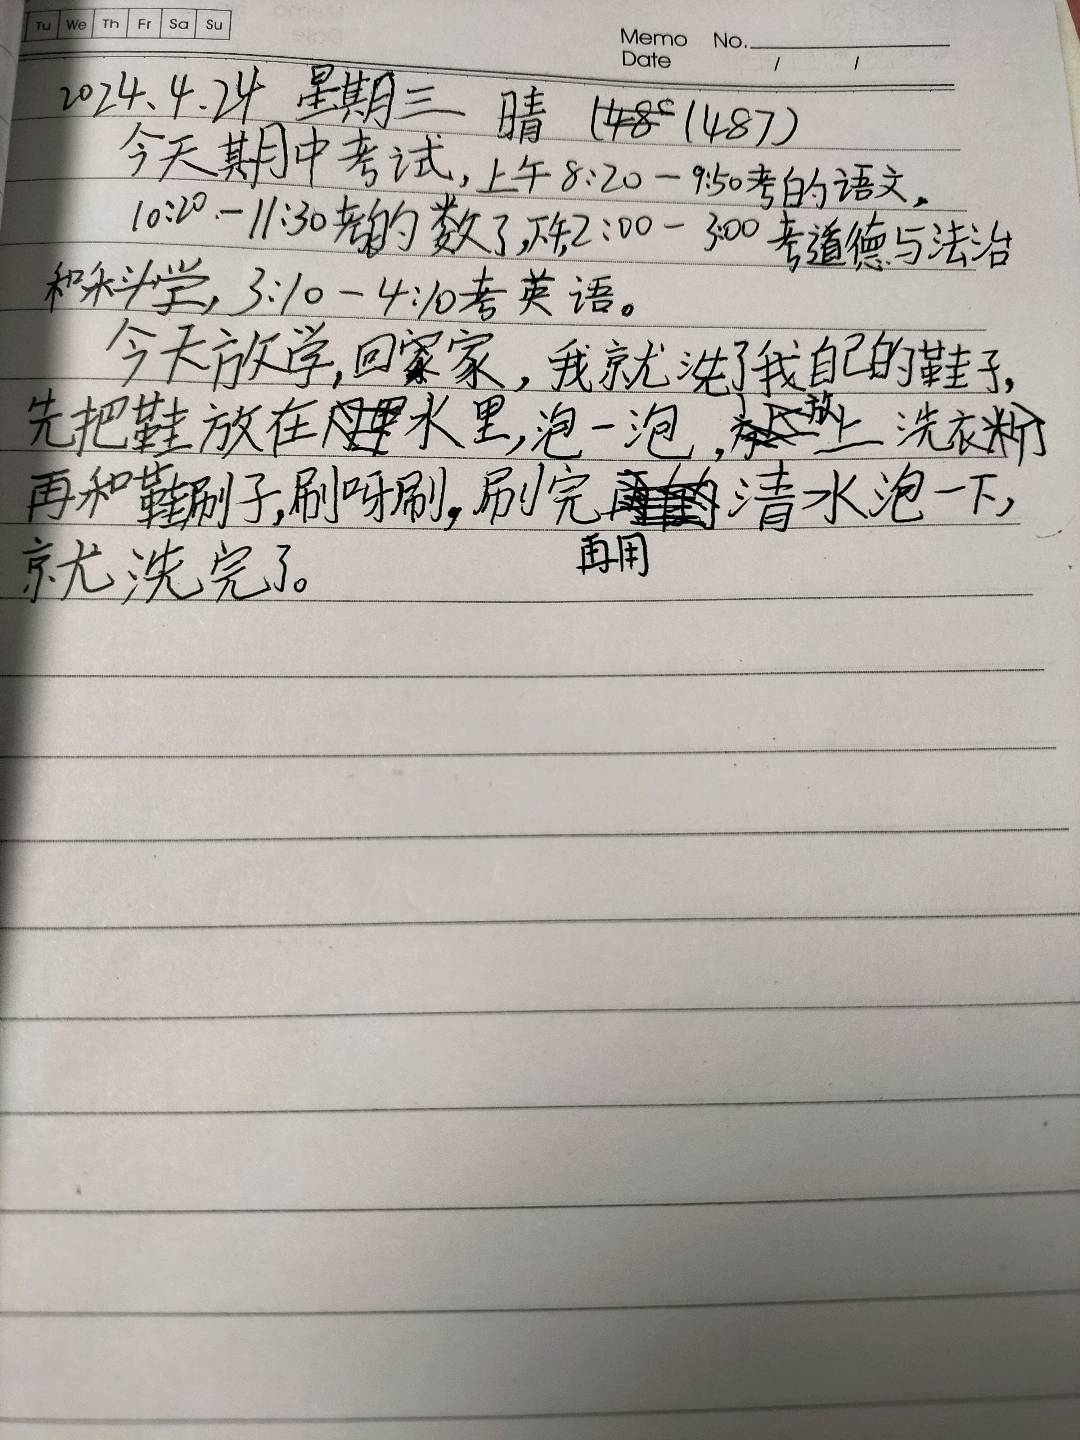 Tu We Th Fr Sa Su
Memo No.
Date / /
2024.4.24 星期三 晴 (487)
今天期中考试,上午8:20-9:50考的语文,
10:20-11:30考的数了,下午2:00-3:00考道德与法治
和科学,3:10-4:10考英语。
今天放学,回家,我就洗了我自己的鞋子,
先把鞋放在水里,泡一泡,放上洗衣粉
再和鞋刷子,刷呀刷,刷完再用清水泡一下,
就洗完了。